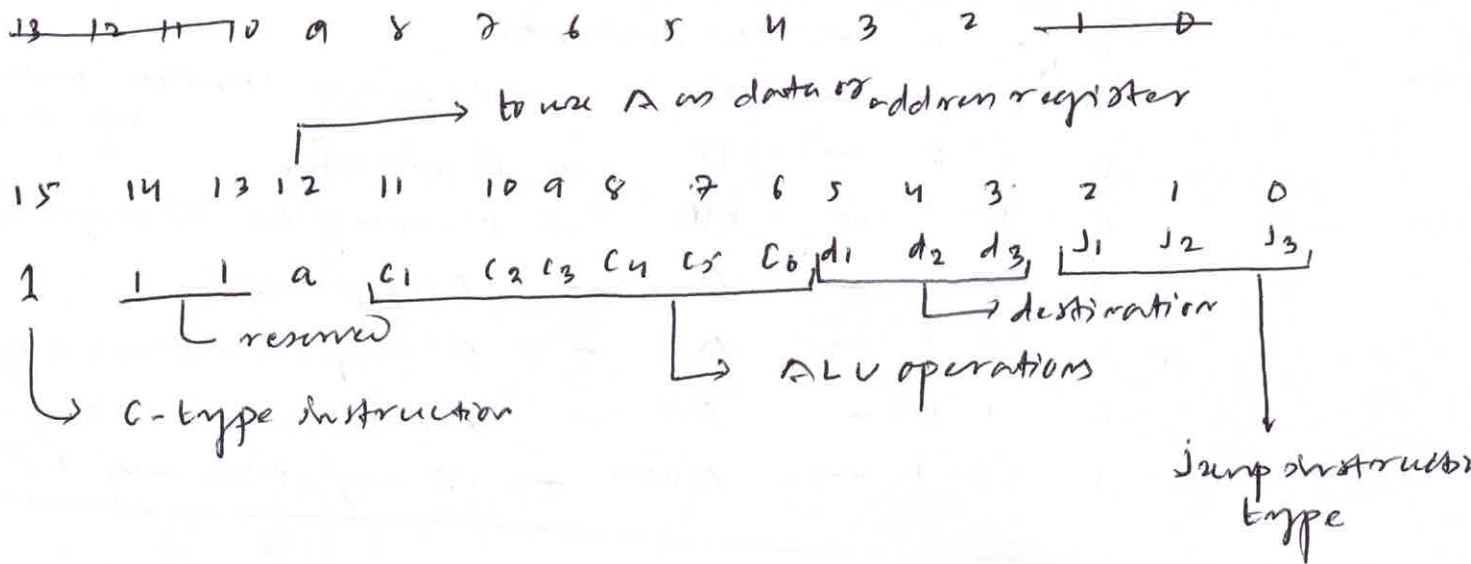 13 12 11 10 9 8 7 6 5 4 3 2 1 0
to use A as data or address register
15 14 13 12 11 10 9 8 7 6 5 4 3 2 1 0
1 1 1 a C1 C2 C3 C4 C5 C6 d1 d2 d3 J1 J2 J3
reserved
destination
ALU operations
C-type instruction
Jump
type